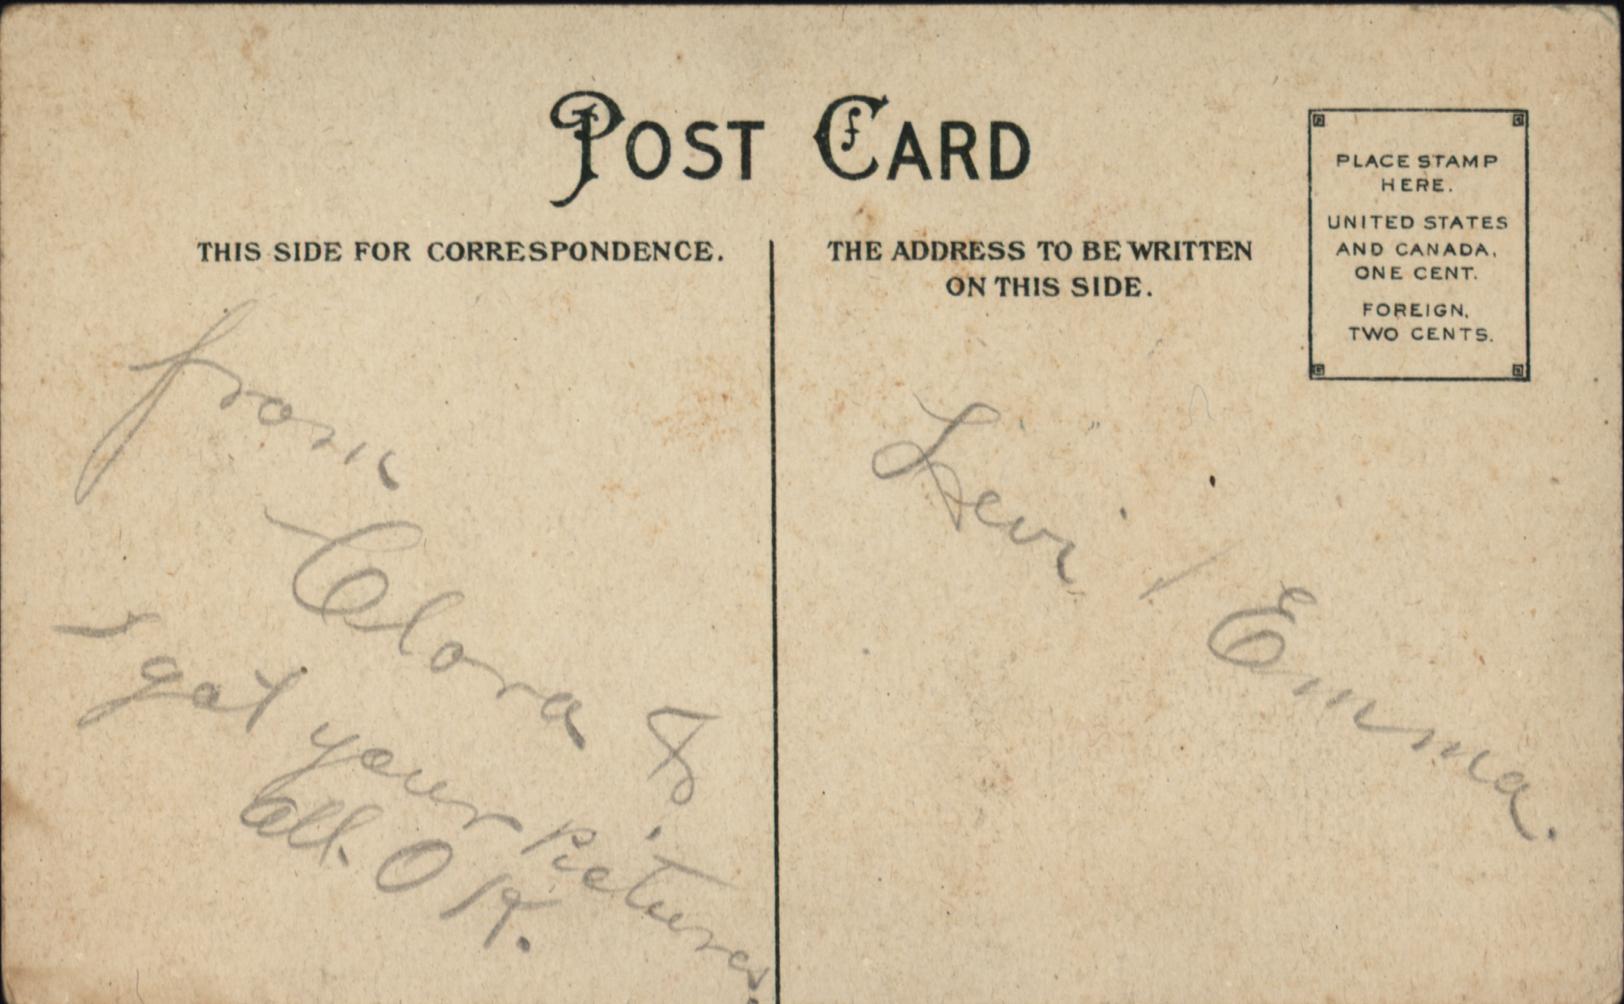 POST CARD
THIS SIDE FOR CORRESPONDENCE.
THE ADDRESS TO BE WRITTEN
ON THIS SIDE.
PLACE STAMP
HERE.
UNITED STATES
AND CANADA,
ONE CENT.
FOREIGN,
TWO CENTS.
from
Clora &
I got your pictures.
all. O K.
Levi / Emma.